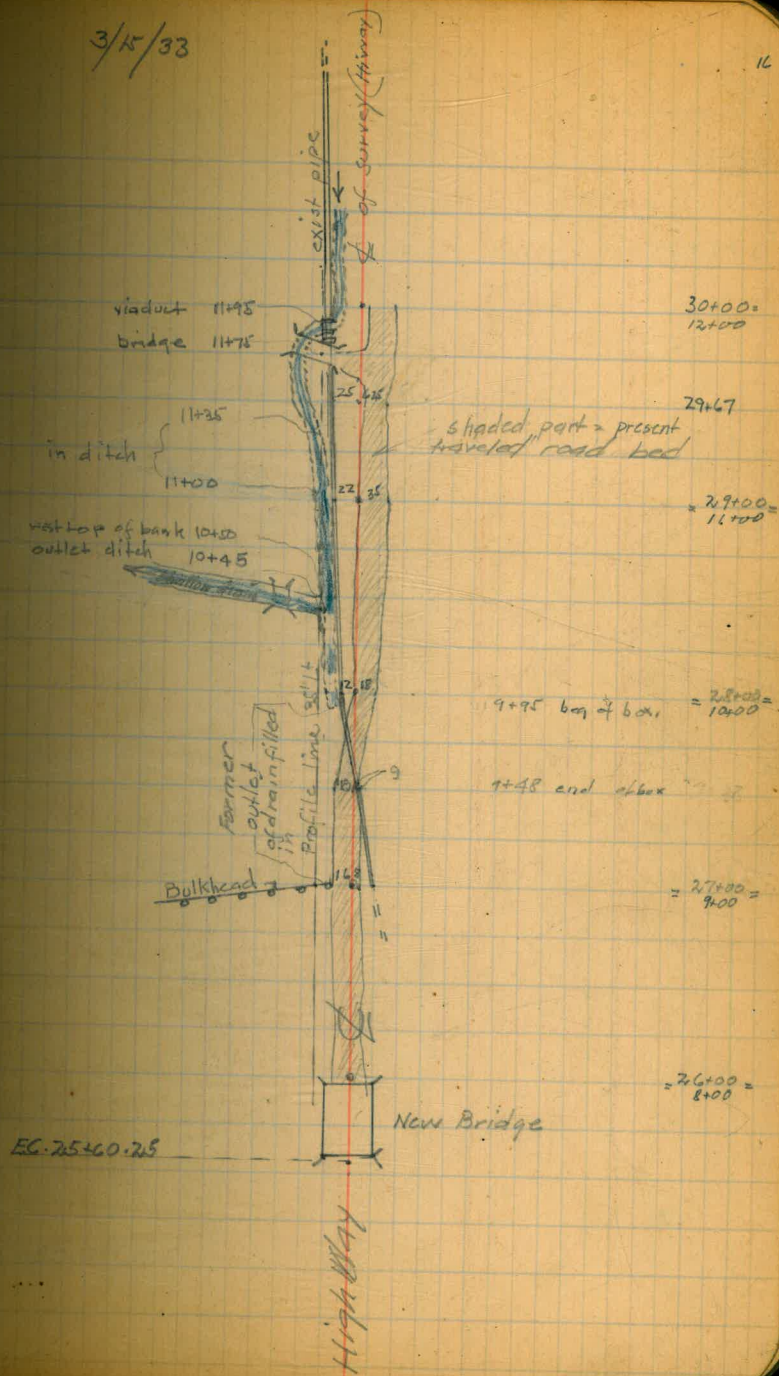 3/15/33
16
exist pipe
℄ of survey (Hiway)
viaduct 11+95
bridge 11+75
30+00=
12+00
25
29+67
11+35
in ditch
11+00
shaded part = present
traveled road bed
22 35
= 29+00 =
11+00
top of bank 10+50
outlet ditch 10+45
12 18
9+95 beg of box.
= 28+00 =
10+00
Former
outlet
of drain filled
in
Profile line 35' Lt
9
9+48 end of box
Bulkhead
16
= 27+00 =
9+00
= 26+00 =
8+00
New Bridge
EC. 25+60.25
High Way